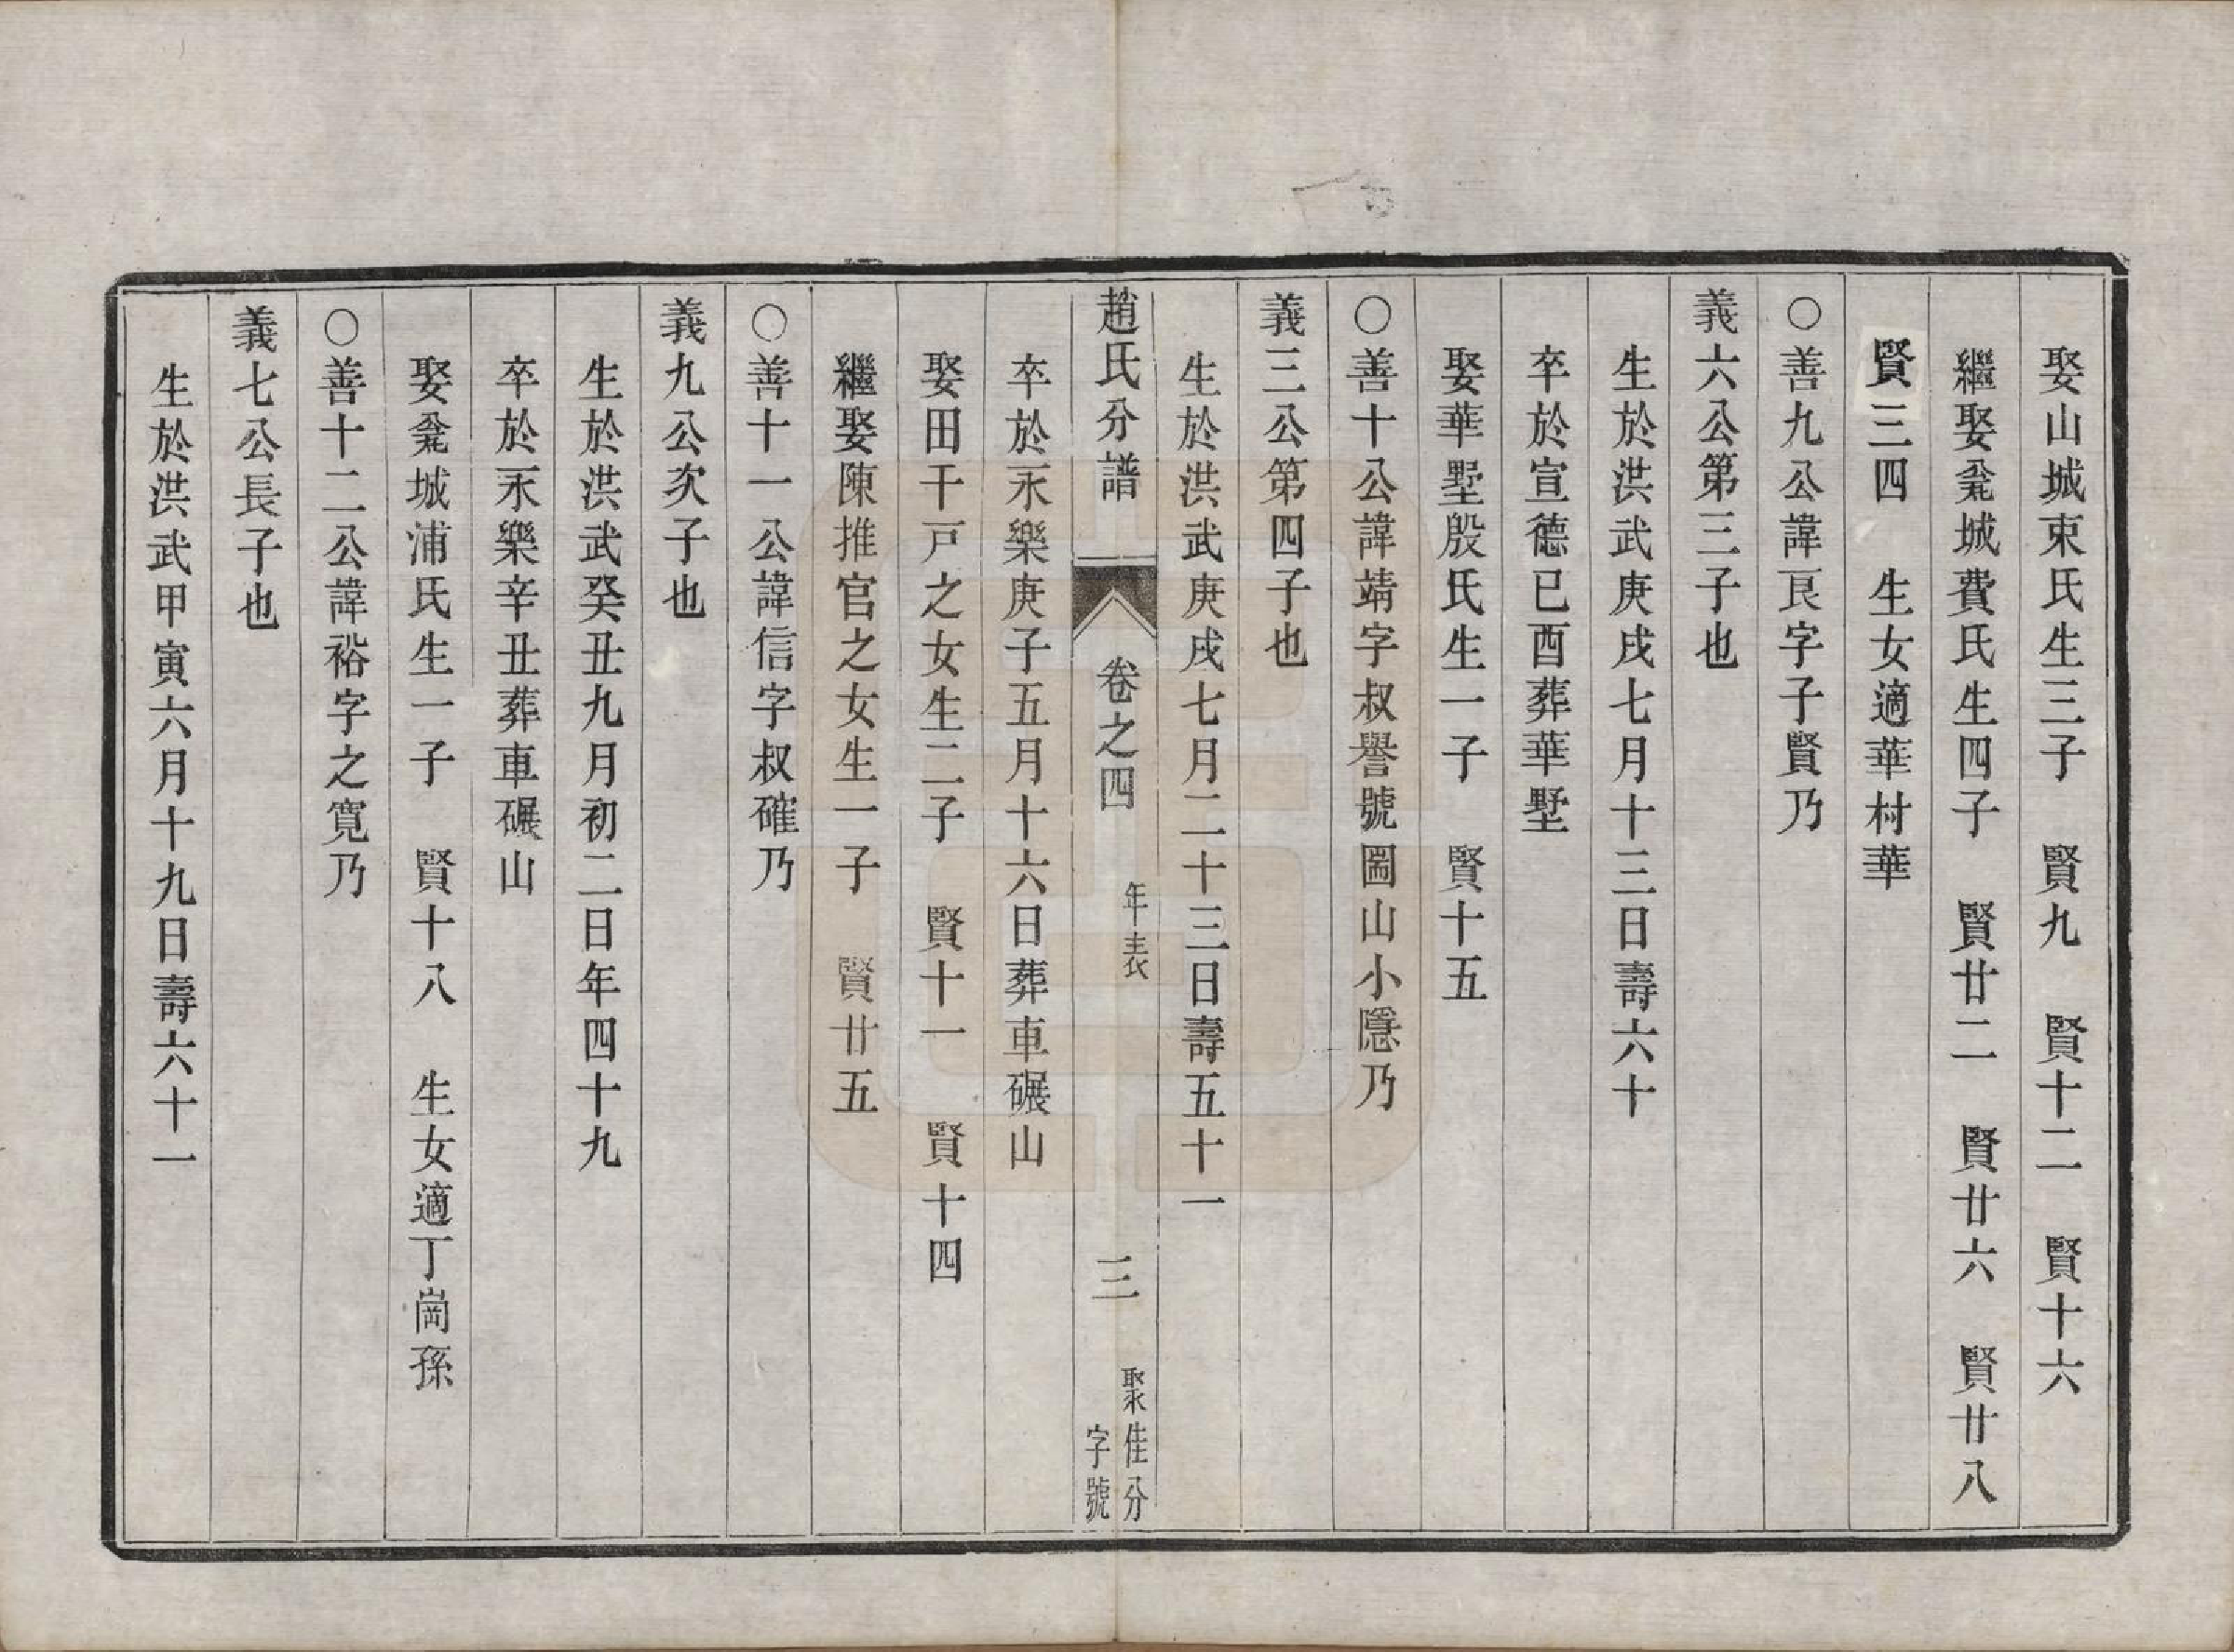 娶山城東氏生三子　賢九　賢十二　賢十六
繼娶鴙城費氏生四子　賢廿二　賢廿六　賢廿八
賢三四　生女適華村華
○善九公諱良字子賢乃
義六公第三子也
生於洪武庚戌七月十三日壽六十
卒於宣德己酉葬華墅
娶華墅殷氏生一子　賢十五
○善十公諱靖字叔譽號圖山小隱乃
義三公第四子也
生於洪武庚戌七月二十三日壽五十一
趙氏分譜　卷之四　年表　三　聚佳分字號
卒於永樂庚子五月十六日葬車碾山
娶田千戶之女生二子　賢十一　賢十四
繼娶陳推官之女生一子　賢廿五
○善十一公諱信字叔確乃
義九公次子也
生於洪武癸丑九月初二日年四十九
卒於永樂辛丑葬車碾山
娶城浦氏生一子　賢十八　生女適丁崗孫
○善十二公諱裕字之寬乃
義七公長子也
生於洪武甲寅六月十九日壽六十一